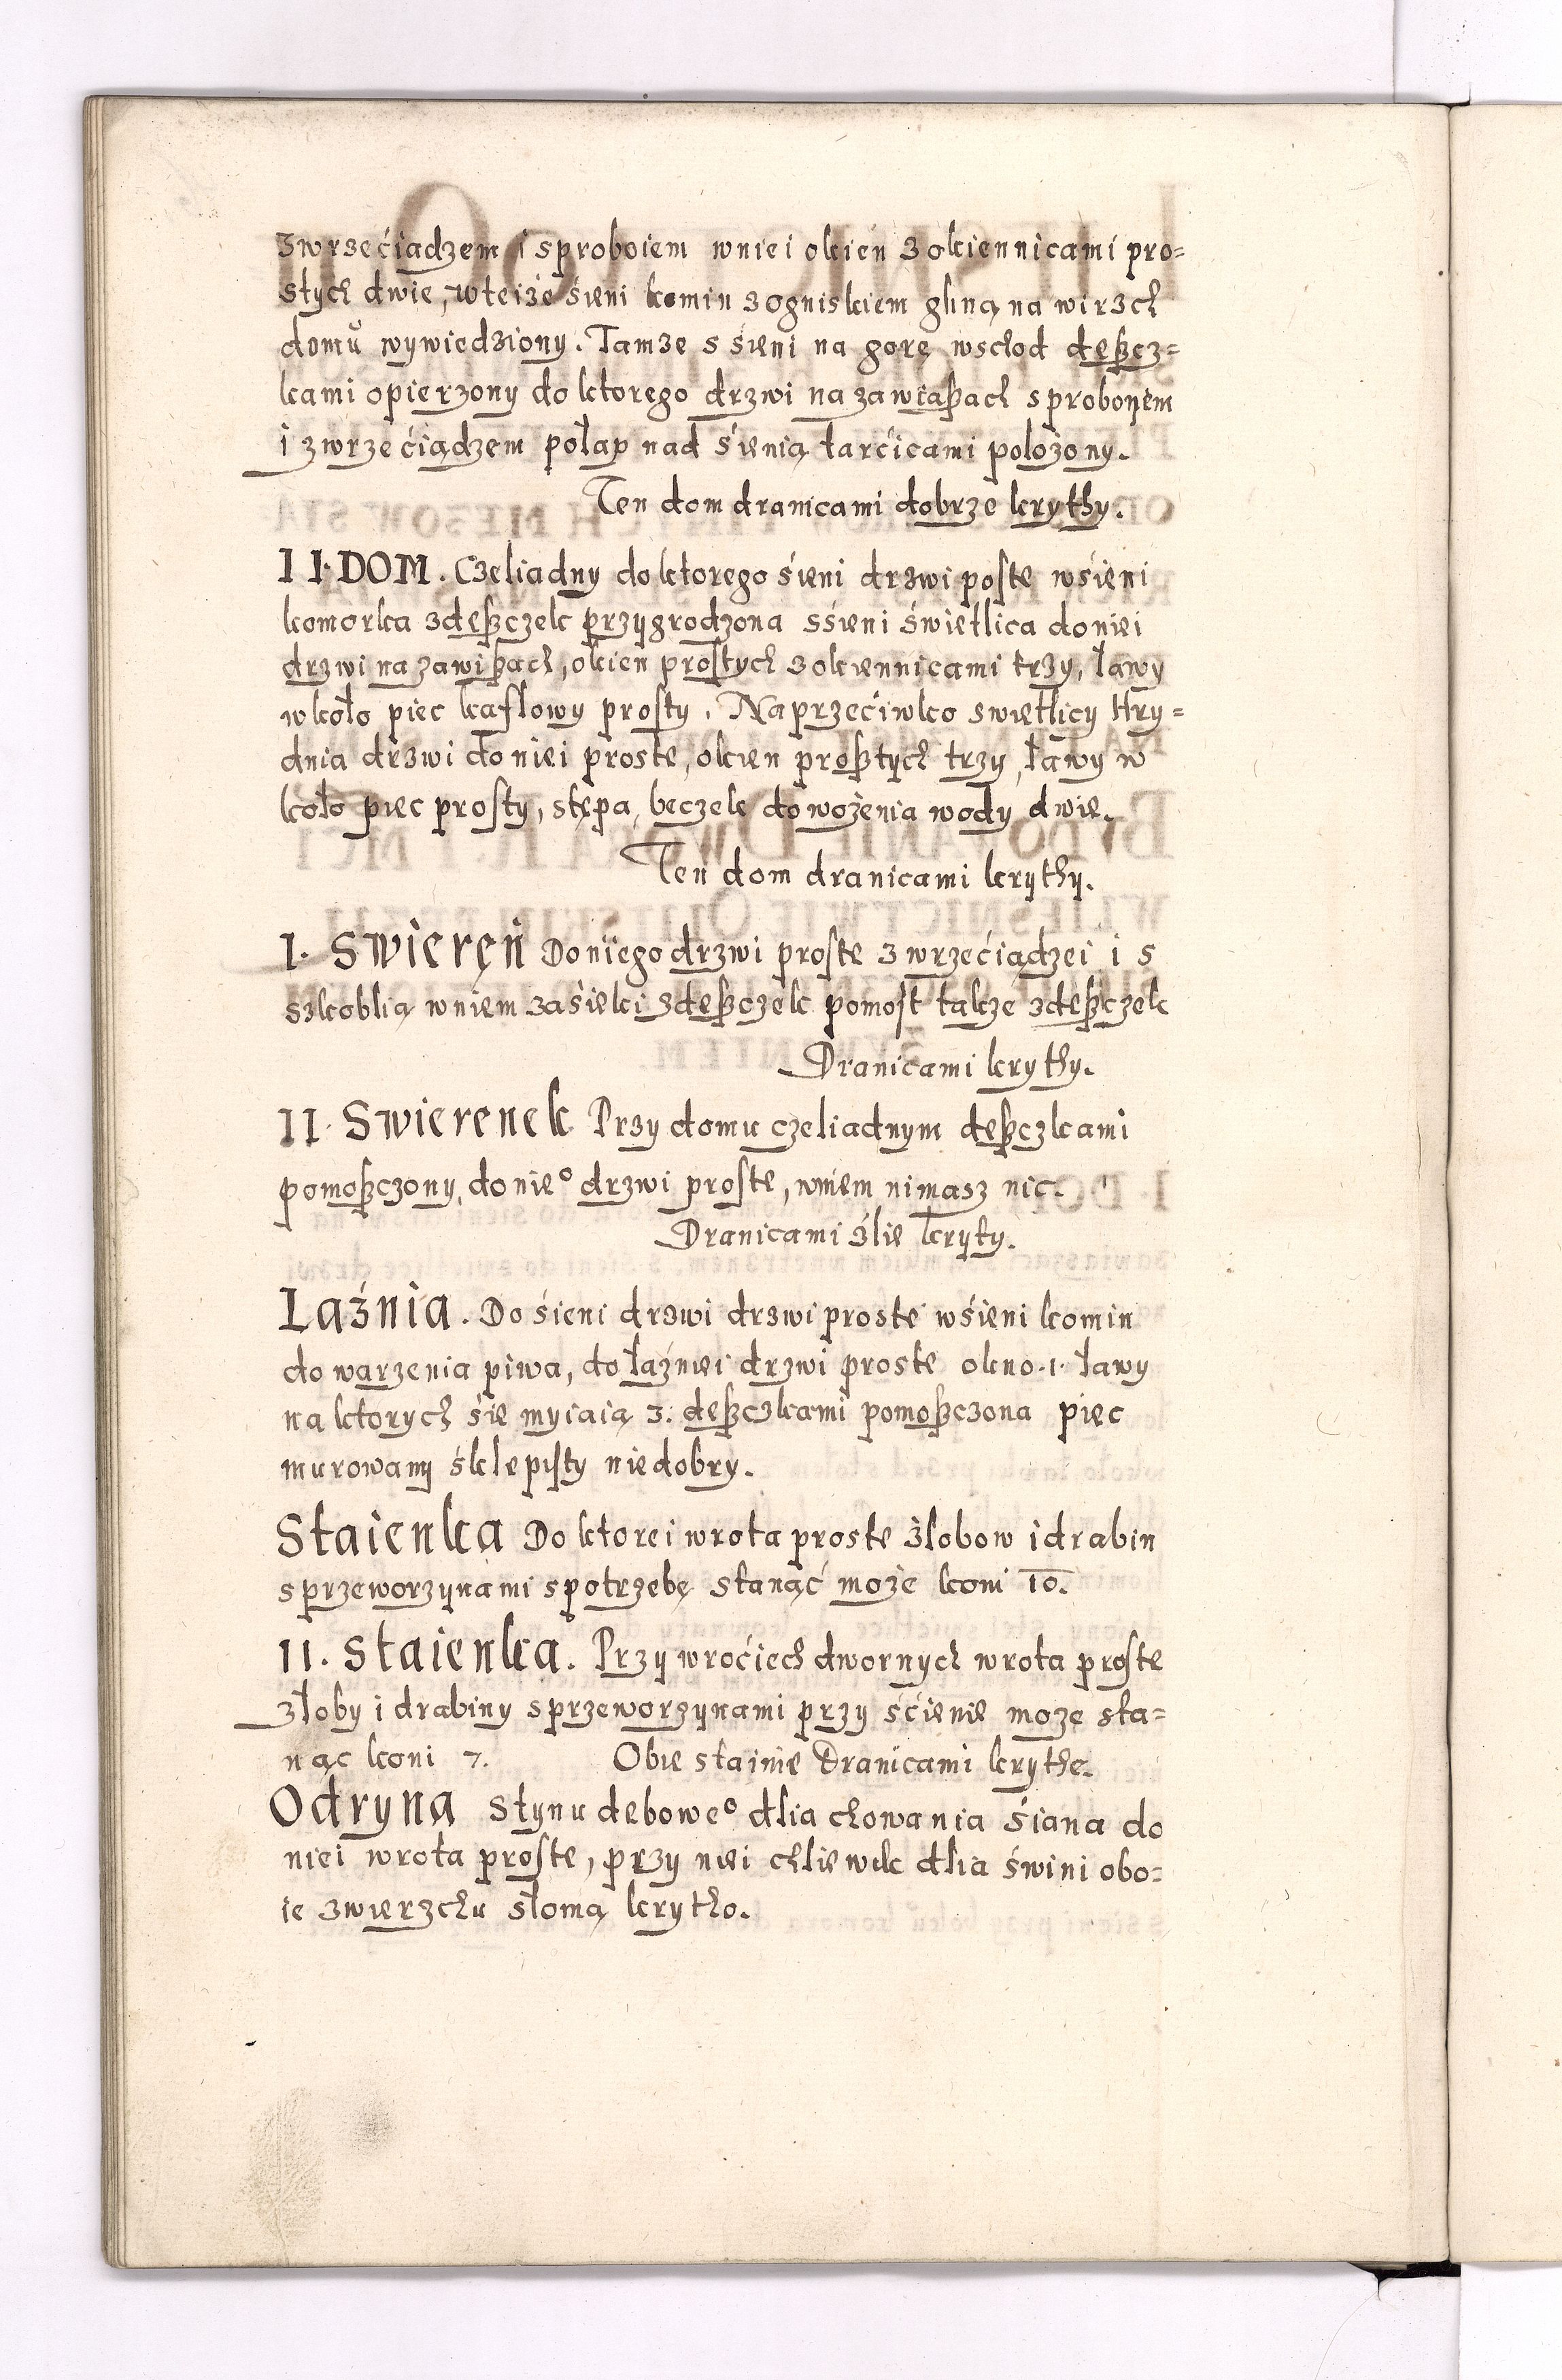 zwrzećiądzem i sproboiem wniei okień z okiennicami pro=
stych dwie, wteiże śieni komin z ogniskiem gliną na wirzch
domů wywiedziony. Tamże s śieni na gorę wschod deszcz=
kami opierzony do ktorego drzwi na zawiaszach sproboyem
i zwrzećiądzem połap nad śienią tarćicami polożony.
Ten dom dranicami dobrze krythy.
II. DOM. Czeliadny do ktorego śieni drzwi poste wśieni
komorka zdeszczek przygrodzona sśieni świetlica do niei
drzwi na zawiszach, okien prostych z okiennicami trzy, ławy
wkoło piec kaflowy prosty. Naprzećiwko swietlicy Hry=
dnia drzwi do niei proste, okien prosztych trzy, ławy w
koło piec prosty, stępa, beczek do wożenia wody dwie.
Ten dom dranicami krythy.
I. Swiereń Do niego drzwi proste z wrzećiądzei i s
szkoblią wniem zaśieki zdeszczek pomost takze zdeszczek
Dranicami krythy.
II. Swierenek Przy domu czeliadnym deszczkami
pomoszczony, do nie° drzwi proste, wniem nimasz nic.
Dranicami źlie kryty.
Łaźnia. Do śieni drzwi drzwi proste wśieni komin
do warzenia piwa, do łaźniei drzwi proste okno .1. ławy
na ktorych śie myiaią 3. deszczkami pomoszczona piec
murowany śklepisty niedobry.
Staienka Do ktorei wrota proste żlobow i drabin
sprzeworzynami spotrzebę stanąć może koni 10.
II. Staienka. Przy wroćiech dwornych wrota proste
złoby i drabiny sprzeworzynami przy śćienie moze sta=
nąc koni 7. Obie stainie Dranicami krythe.
Odryna Stynu debowe° dlia chowania śiana do
niei wrota proste, przy niei chliewek dlia świni obo=
ie zwierzchu słomą krytho.